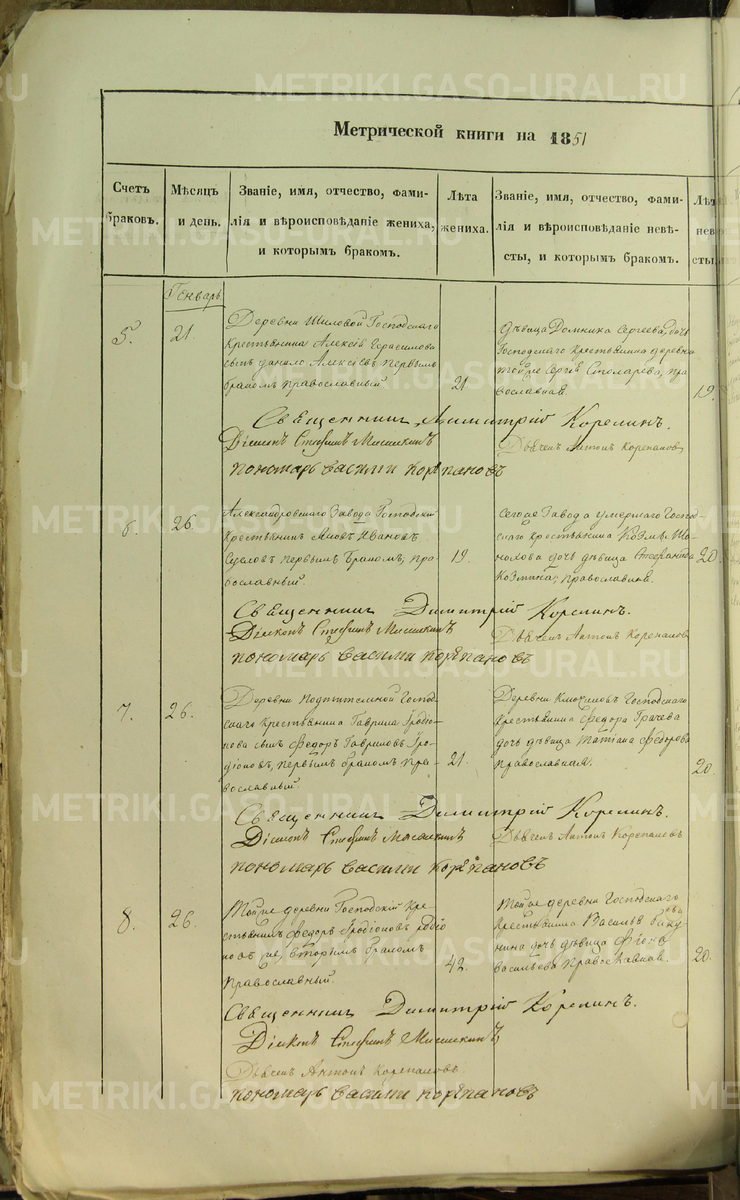 METRIKI.GASO-URAL.RU
Метрической книги на 1851
Счетъ браковъ.
Мѣсяцъ и день.
Званіе, имя, отчество, фами-
лія и вѣроисповѣданіе жениха,
и которымъ бракомъ.
Лѣта жениха.
Званіе, имя, отчество, фами-
лія и вѣроисповѣданіе невѣ-
сты, и которымъ бракомъ.
Лѣт
нев
сты
Генварь
5.
21.
Деревни Шиловой Господскаго
крестьянина Алексѣя Герасимова
сынъ Данило Алексѣевъ первымъ
бракомъ православный
21
дѣвица Домника Сергеева, дочь
Господскаго крестьянина деревни
тойже Сергія Столарева, пра
вославная
19.
Священникъ Димитрій Корелинъ.
Діаконъ Стефанъ Мишкинъ
Дьячекъ Антонъ Корепановъ
пономарь Василій Корѣпановъ
6.
26.
Александровскаго Завода Господскій
крестьянинъ Яковъ Ивановъ
первымъ бракомъ, пра-
вославный.
19.
Сегоже Завода умершаго Господ-
скаго крестьянина Козмы
дочь дѣвица
Козмина, православная.
20.
Священникъ Димитрій Корелинъ.
Діаконъ Стефанъ Мишкинъ
Дьячекъ Антонъ Корепановъ
пономарь Василій Корѣпановъ
7.
26.
Деревни Господ-
скаго крестьянина Гаврила Иродіо-
нова сынъ Федоръ Гавриловъ Иро-
діоновъ, первымъ бракомъ пра-
вославный.
21.
Деревни Господскаго
крестьянина Федора Грачева
дочь дѣвица Татіана Федорова
православная.
20.
Священникъ Димитрій Корелинъ.
Діаконъ Стефанъ Мишкинъ
Дьячекъ Антонъ Корепановъ
пономарь Василій Корѣпановъ
8.
26.
Тойже деревни Господскій кре-
стьянинъ Федоръ Иродіоновъ
вторымъ бракомъ
православный.
42.
Тойже деревни Господскаго
крестьянина Василья
дочь дѣвица
Васильева православная.
20.
Священникъ Димитрій Корелинъ.
Діаконъ Стефанъ Мишкинъ
Дьячекъ Антонъ Корепановъ.
пономарь Василій Корѣпановъ